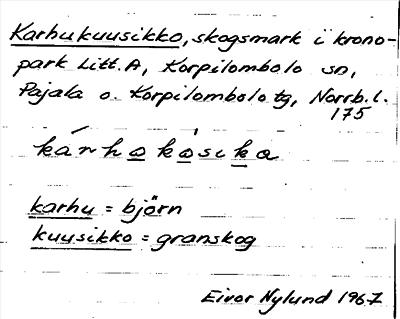 Karhukuusikko, skogsmark i krono-
park Litt. A, Korpilombolo sn,
Pajala o. Korpilombolo tg, Norrb. l.
175
kárhokósika
karhu = björn
kuusikko = granskog
Eivor Nylund 1967